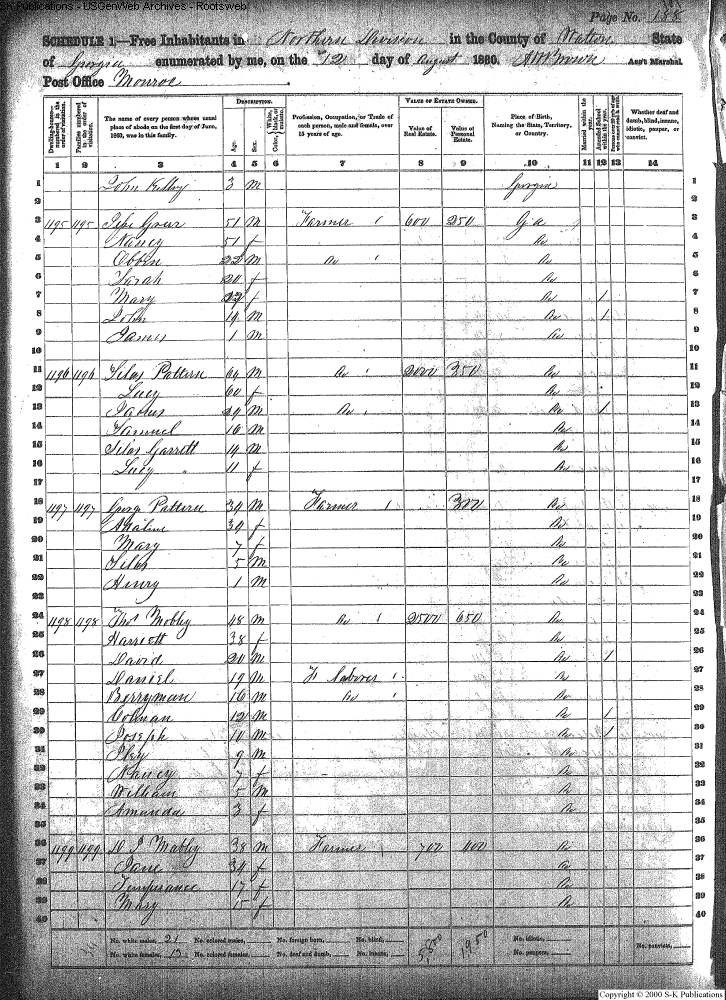 S-K Publications - USGenWeb Archives - Rootsweb
Page No. 188
SCHEDULE 1—Free Inhabitants in Northern Division in the County of Walton State
of Georgia enumerated by me, on the 12 day of August 1860. Ass't Marshal
Post Office Monroe
Dwelling-houses—numbered in the order of visitation.
Families numbered in the order of visitation.
The name of every person whose usual place of abode on the first day of June, 1860, was in this family.
DESCRIPTION.
Age.
Sex.
Color, White, black, or mulatto.
Profession, Occupation, or Trade of each person, male and female, over 15 years of age.
VALUE OF ESTATE OWNED.
Value of Real Estate.
Value of Personal Estate.
Place of Birth, Naming the State, Territory, or Country.
Married within the year.
Attended School within the year.
Whether deaf and dumb, blind, insane, idiotic, pauper, or convict.
1 2 3 4 5 6 7 8 9 10 11 12 13 14
1 John Kelley 3 m Georgia 1
2 2
3 1195 1195 Greer 51 M Farmer 600 250 Ga 3
4 Nancy 51 f Do 4
5 22 M Do Do 5
6 Sarah 20 f Do 6
7 Mary 22 f Do 1 7
8 John 14 M Do 1 8
9 James 1 M Do 9
10 10
11 1196 1196 Silas Pattern 69 M Do 2000 350 Do 11
12 Lucy 60 f Do 12
13 29 M Do Do 1 13
14 Samuel 16 M Do 14
15 Silas Garrett 14 M Do 15
16 Lucy " 11 f Do 16
17 17
18 1197 1197 Georg Pattern 34 M Farmer 300 Do 18
19 34 f Do 19
20 Mary 7 f Do 20
21 Silas 5 M Do 21
22 Henry 1 M Do 22
23 23
24 1198 1198 Thos Mobley 48 M Do 2500 650 Do 24
25 Harriett 38 f Do 25
26 David 20 M Do 1 26
27 Daniel 19 M F Laborer Do 27
28 Berryman 16 M Do Do 28
29 Colman 12 M Do 1 29
30 Joseph 10 M Do 1 30
31 9 M Do 31
32 Nancy 7 f Do 32
33 William 5 M Do 33
34 Amanda 3 f Do 34
35 35
36 1199 1199 Mobley 38 M Farmer 700 400 Do 36
37 Jane 34 f Do 37
38 Temperance 17 f Do 38
39 Mary 15 f Do 39
40 40
No. white males, 21 No. colored males, No. foreign born, No. blind, 5,800 1950 No. idiotic,
No. white females, No. colored females, No. deaf and dumb, No. insane, No. paupers, No. convicts,
Copyright © 2000 S-K Publications